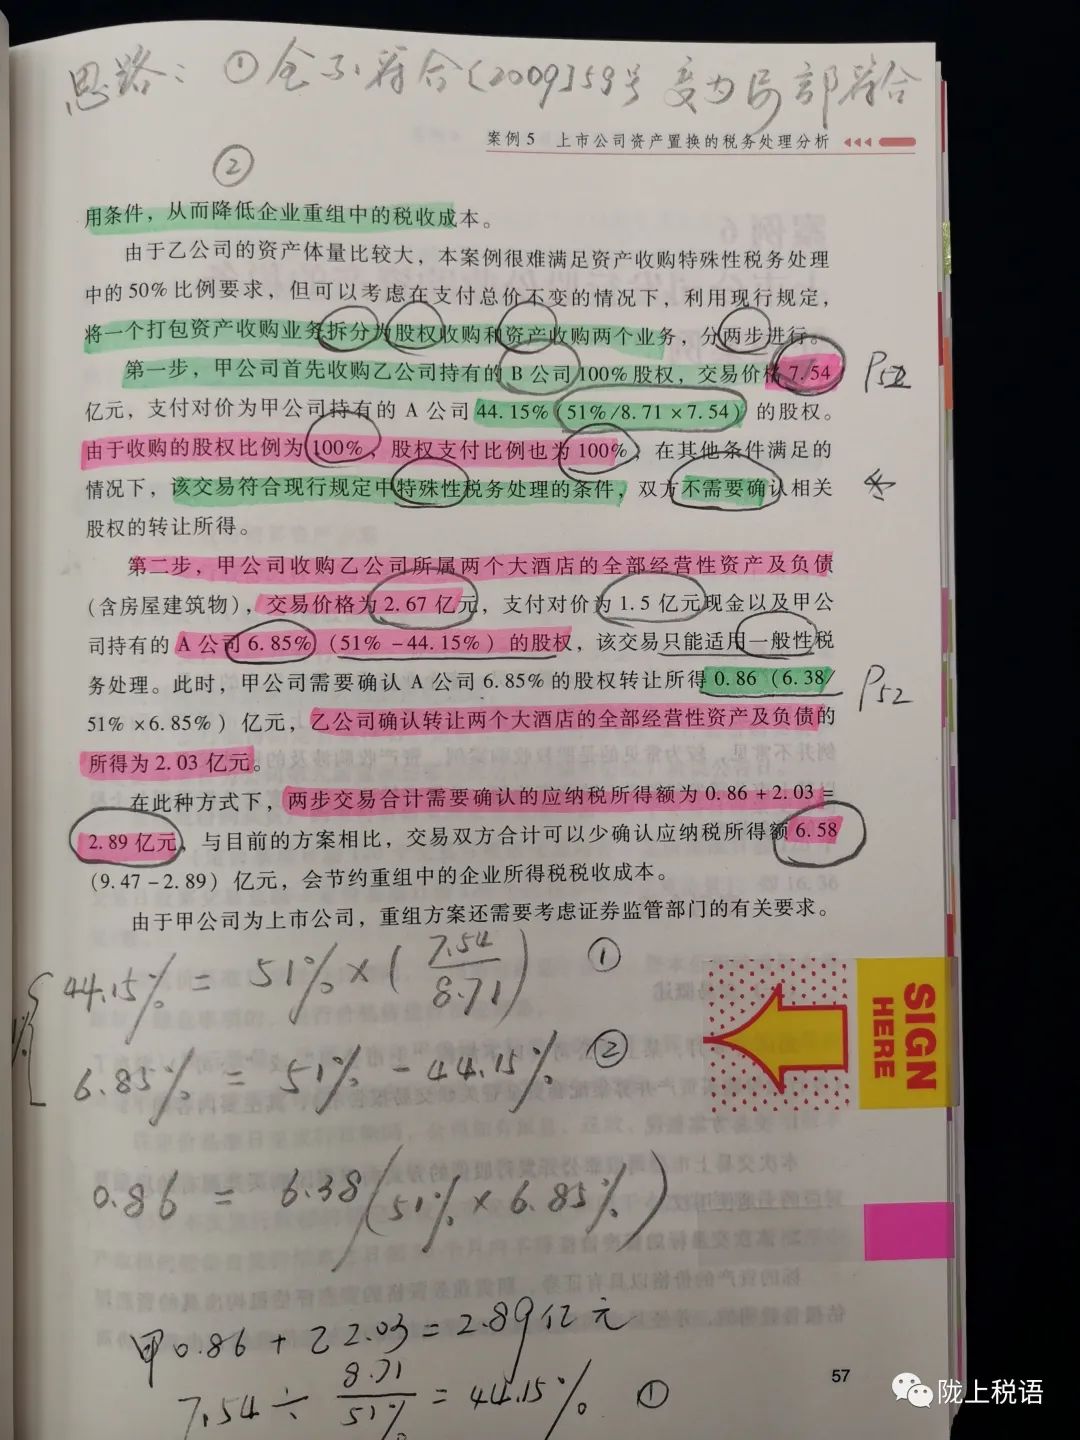 思路：①全不符合(2009]59号 变为局部符合
案例5 上市公司资产置换的税务处理分析
②
用条件，从而降低企业重组中的税收成本。
由于乙公司的资产体量比较大，本案例很难满足资产收购特殊性税务处理
中的50%比例要求，但可以考虑在支付总价不变的情况下，利用现行规定，
将一个打包资产收购业务拆分为股权收购和资产收购两个业务，分两步进行。
第一步，甲公司首先收购乙公司持有的B公司100%股权，交易价格7.54
P52
亿元，支付对价为甲公司持有的A公司44.15%（51%/8.71×7.54）的股权。
由于收购的股权比例为100%，股权支付比例也为100%，在其他条件满足的
情况下，该交易符合现行规定中特殊性税务处理的条件，双方不需要确认相关
股权的转让所得。
第二步，甲公司收购乙公司所属两个大酒店的全部经营性资产及负债
（含房屋建筑物），交易价格为2.67亿元，支付对价为1.5亿元现金以及甲公
司持有的A公司6.85%（51%-44.15%）的股权，该交易只能适用一般性税
务处理。此时，甲公司需要确认A公司6.85%的股权转让所得0.86（6.38/
P52
51%×6.85%）亿元，乙公司确认转让两个大酒店的全部经营性资产及负债的
所得为2.03亿元。
在此种方式下，两步交易合计需要确认的应纳税所得额为0.86+2.03=
2.89亿元，与目前的方案相比，交易双方合计可以少确认应纳税所得额6.58
（9.47-2.89）亿元，会节约重组中的企业所得税税收成本。
由于甲公司为上市公司，重组方案还需要考虑证券监管部门的有关要求。
44.15% = 51% × (7.54/8.71) ①
6.85% = 51% - 44.15% ②
SIGN
HERE
0.86 = 6.38/(51% × 6.85%)
甲0.86 + 乙2.03 = 2.89亿元
7.54 ÷ 8.71/51% = 44.15% ①
57
陇上税语